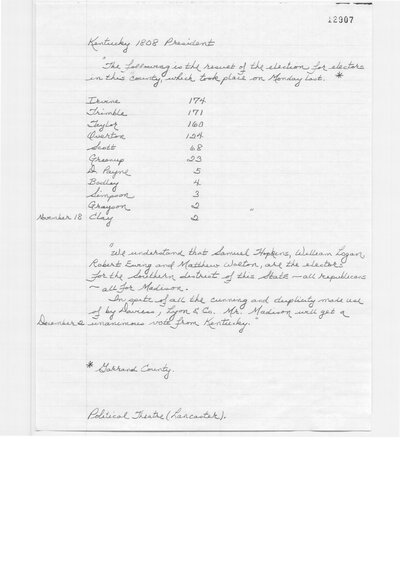 12907
Kentucky 1808 President
"The following is the result of the election for electors
in this county, which took place on Monday last. *
Irvine 174
Trimble 171
Taylor 160
Overton 124
Scott 68
Greenup 23
D. Payne 5
Bodley 4
Simpson 3
Grayson 2
November 18 Clay 2 "
"We understand that Samuel Hopkins, William Logan,
Robert Ewing and Matthew Walton, are the electors
for the Southern district of this State - all republicans
- all for Madison.
In spite of all the cunning and duplicity made use
of by Daviess, Lyon & Co. Mr. Madison will get a
December 2 unanimous vote from Kentucky."
* Garrard County.
Political Theatre (Lancaster).